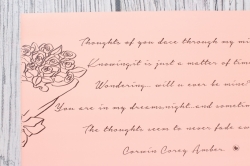 Thoughts of you dace through my mi
Knowing it is just a matter of time
Wondering... will u ever be mine?
You are in my dreams, night...and sometim
The thoughts seem to never fade aw
Corwin Corey Amber